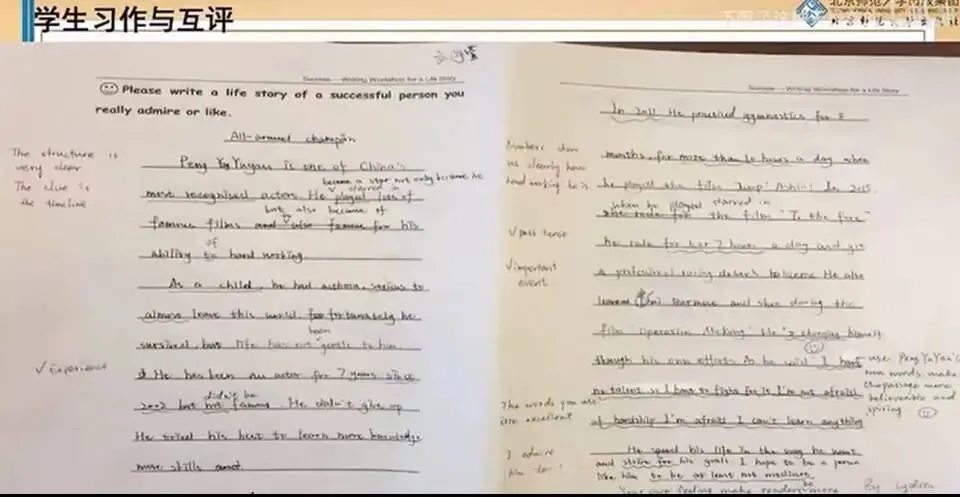 学生习作与互评
Success Writing Workshop for a Life Story
Please write a life story of a successful person you
really admire or like.
All-around champion
The structure is
very clear
The clue is
the timeline
Peng Yu Yuyan is one of China's
became a star not only because he
most recognised actors. He played starred in lots of
but also because of
famous films and also famous for his
of
ability to hard working.
As a child, he had asthma, serious to
almost leave this world, fortunately he
been
survived, but life has not gentle to him.
√ Experience
He has been an actor for 7 years since
didn't be
2002 but not famous. He didn't give up
He tried his best to learn more knowledge
more skills
Success Writing Workshop for a Life Story
In 2011 He practised gymnastics for 8
Numbers show
us clearly how
hard working he is
months, for more than 10 hours a day when
he played the film "Jump! Ashin! In 2015,
when he played starred in
the film "To the Fore"
√ past tense
he rode for 6 or 7 hours a day and got
√ important
event
a professional racing driver's license. He also
learned and during the
film Operation Mekong. He's changing himself
though his own efforts. As he said "I have
use Peng Yu Yan's
own words make
the passage more
believable and
no talent, so I have to fight for it I'm not afraid
The words you use
are excellent
of hardship I'm afraid I can't learn anything
I admire
him too!
He spend his life in the way he want
and strive for his goals. I hope to be a person
like him to be at least not mediocre.
Your own feeling make readers more
By Lydia